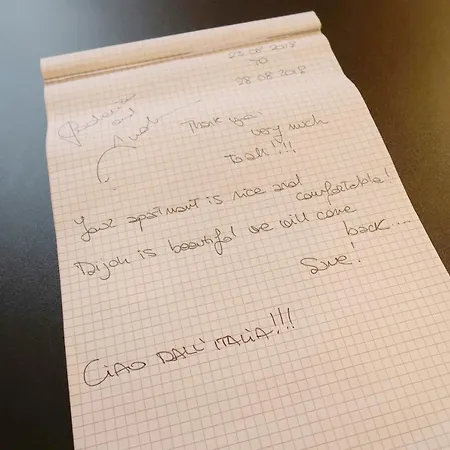 23 08 2018
TO
28 08 2018
and
Thank you
very much
to all!!!
Your apartment is nice and
comfortable!
Dijon is beautiful we will come
back....
Sure!
CIAO DALL'ITALIA!!!